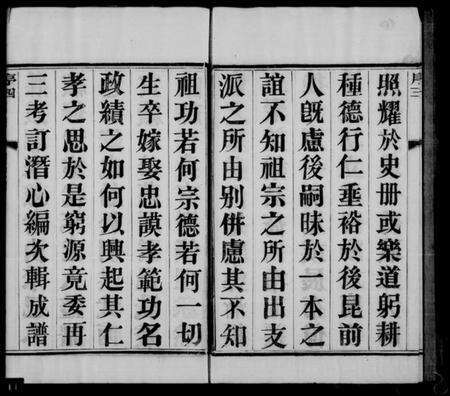 序三
照耀於史册或樂道躬耕
種德行仁垂裕於後昆前
人旣慮後嗣昧於一本之
誼不知祖宗之所由出支
派之所由别併慮其不知
祖功若何宗德若何一切
生卒嫁娶忠謨孝範功名
政績之如何以興起其仁
孝之思於是窮源竟委再
三考訂潛心編次輯成譜
序四